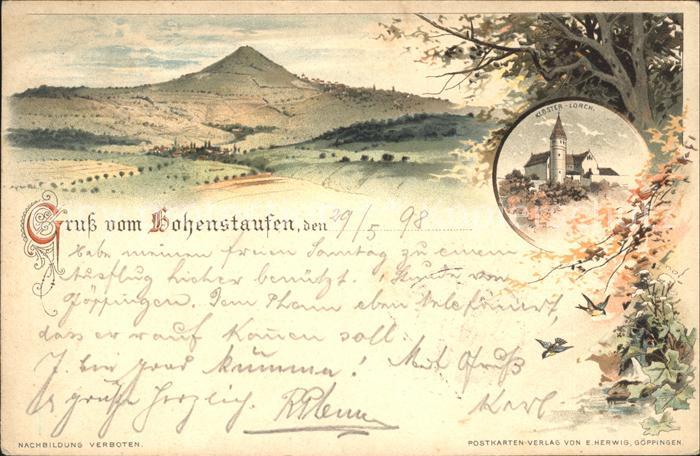 KLOSTER-LORCH.
Gruß vom Hohenstaufen, den 29/5 98
Habe meinen freien Sonntag zu einem
Ausflug hieher benützt. von
Göppingen. Dem eben telefoniert,
dass er rauf kommen soll.
J. bin grad kumma! Mit Gruß
Es grüßt herzlich. Karl.
NACHBILDUNG VERBOTEN.
POSTKARTEN-VERLAG VON E. HERWIG, GÖPPINGEN.